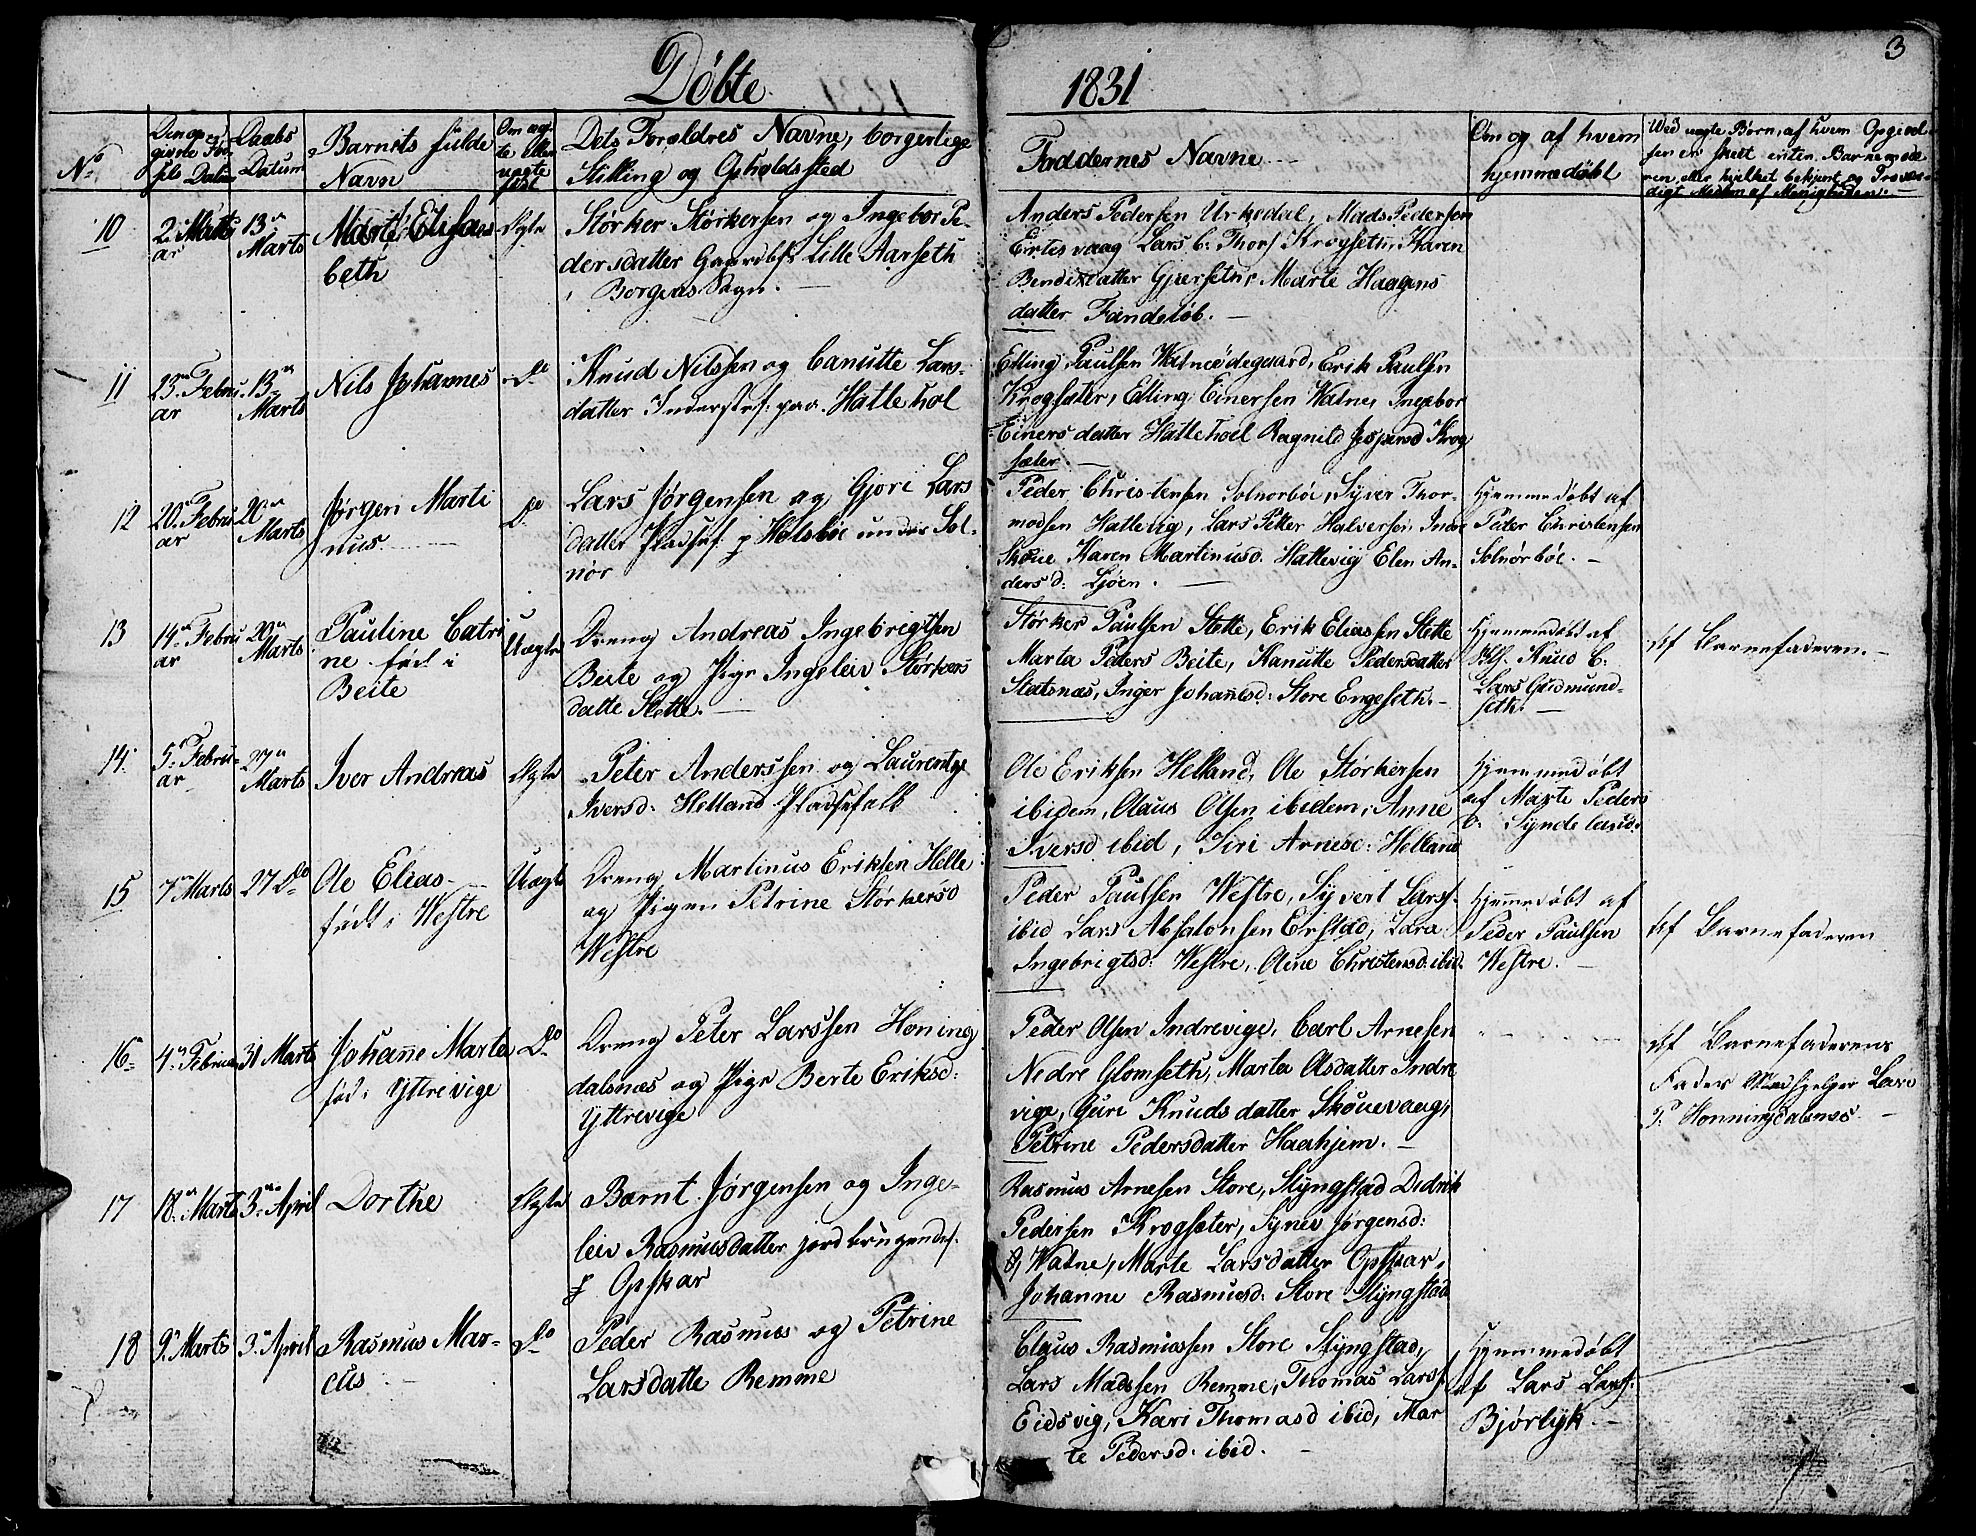 Döbte
1831
3
No
Den op-
givne Föd-
sels Datum
Daabs
Datum
Barnets fulde
Navn
Om æg-
te eller
uægte
föd
Dets Forældres Navne, borgerlige
Stilling og Opholdssted
Faddernes Navne
Om og af hvem
hjemmedöbt
Ved uægte Börn, af hvem Opgivel-
sen er skeet enten Barnemode-
ren, eller hvilket bekjent og Trovær-
digt Medlem af Menigheden.
10
2 Marts
13 Marts
Marte Elisa-
beth
Ægte
Störker Störkersen og Ingebor Pe-
dersdatter Gaardbf. Lille Aarseth
i Borgens Sogn.
Anders Pedersen Urkedal, Mads Pedersen
Eirtesvaag Lars b: Thors Krogsetn, Karen
Bendixdatter Gjersetn, Marte Haagens
datter Fandelöb.
11
23 Febru
ar
13
Marts
Nils Johannes
Do
Knud Nilssen og Canutte Lars-
datter Inderstef: paa Hattehol
Elling Paulsen Watneödegaard, Erik Paulsen
Krogsæter, Elling Einersen Watne, Ingebor
Einersdatter Hattehoel Ragnild Jespersd Krog
sæter.
12
20 Febru
ar
20
Marts
Jörgen Marti
nus
Do
Lars Jörgensen og Gjori Lars
datter Pladsef. p Holsböe under Sol-
nör
Peder Christensen Solnorböe, Syver Thor-
modsen Hattevig, Lars Petter Halversen Indre
Skoue Karen Martinusd. Hattevig Elen An-
dersd: Sjöen.
Hjemmedöbt af
Peder Christensen
Solnörböe.
13
14 Febru
ar
20
Marts
Pauline Catri
ne föd i
Beite
Uægte
Dreng Andreas Ingebrigtsen
Beite og Pige Ingeleiv Störkers
datte Slette.
Störker Paulsen Slette, Erik Eliassen Slette
Marta Peders Beite, Kanutte Pedersdatter
Statsnæs, Inger Johannesd: Store Engeseth.
Hjemmedöbt af
Klf. Knud C.
Lars Gudmund-
seth.
Af Barnefaderen.
14
5 Febru-
ar
27
Marts
Iver Andreas
Ægte
Peter Anderssen og Laurentze
Iversd: Helland Pladsefolk
Ole Eriksen Helland, Ole Störkersen
ibidem, Olaus Olsen ibidem, Anne
Iversd ibid, Siri Arnesd: Helland
Hjemmedöbt
af Marte Peders
D. Syndeland.
15
7 Marts
27 Do
Ole Elias
födt i Westre
Uægte
Dreng Martinus Eriksen Helle
og Pigen Petrine Störkersd
Westre
Peder Paulsen Westre, Syvert Larss.
ibid Lars Absalonsen Erstad, Lara
Ingebrigtsd: Westre, Oline Christensd: ibid.
Hjemmedöbt af
Peder Paulsen
Westre.
Af Barnefaderen
16
4 Februar
31 Marts
Johanne Marta
föd i Yttrevige
Do
Dreng Peter Larssen Honing
dalsnæs og Pige Berte Eriksd:
Yttrevige
Peder Olsen Indrevige, Carl Arnesen
Nedre Glomseth, Marta Olsdatter Indre
vige, Guri Knudsdatter Skouevaag,
Petrine Pedersdatter Haahjem.
Af Barnefaderens
Fader Medhjelper Lars
P. Honningdalsnæs.
17
18 Marts
3 April
Dorthe
Ægte
Barnt Jörgensen og Inge-
leiv Rasmusdatter jordbrugendef.
p Opskar
Rasmus Arnesen Store, Slyngstad Didrik
Pedersen Krogsæter, Synev Jörgensd:
Ö, Watne, Marte Larsdatter Opskar,
Johanne Rasmusd: Store Slyngstad
18
9 Marts
3 April
Rasmus Mar-
cus
Do
Peder Rasmus og Petrine
Larsdatte Remme
Claus Rasmussen Store Slyngstad,
Lars Madssen Remme, Thomas Larss.
Eidsvig, Kari Thomasd ibid, Mar
te Pedersd: ibid.
Hjemmedöbt
af Lars Larss.
Bjørlyk.